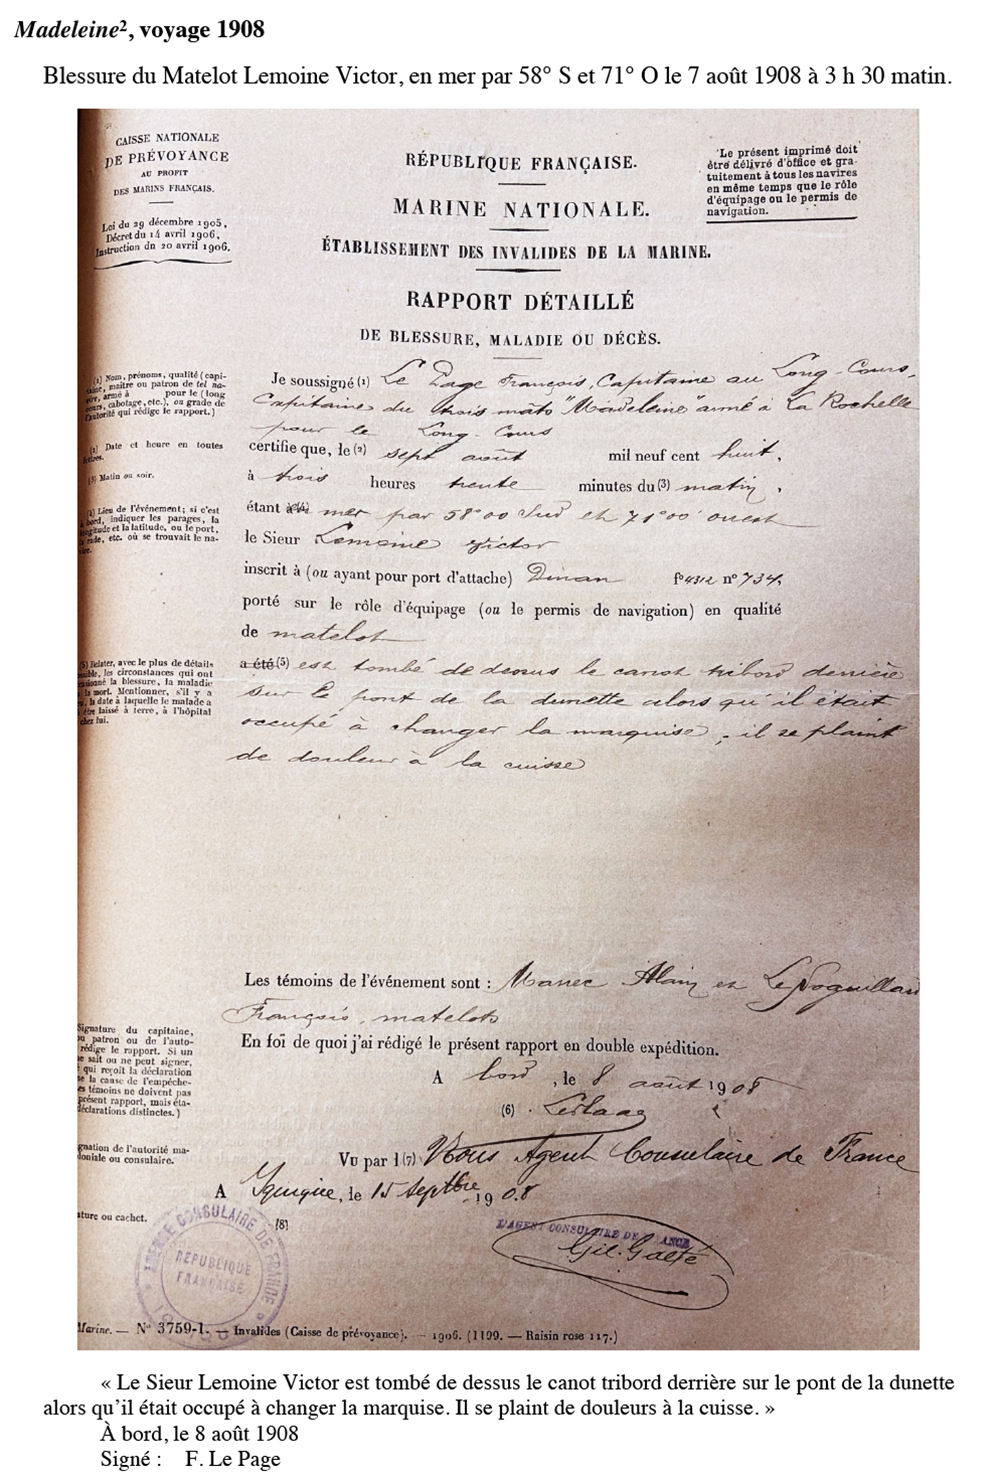 Madeleine², voyage 1908
Blessure du Matelot Lemoine Victor, en mer par 58° S et 71° O le 7 août 1908 à 3 h 30 matin.
CAISSE NATIONALE
DE PRÉVOYANCE
AU PROFIT
DES MARINS FRANÇAIS.
Loi du 29 décembre 1905,
Décret du 14 avril 1906,
Instruction du 20 avril 1906.
RÉPUBLIQUE FRANÇAISE.
MARINE NATIONALE.
ÉTABLISSEMENT DES INVALIDES DE LA MARINE.
RAPPORT DÉTAILLÉ
DE BLESSURE, MALADIE OU DÉCÈS.
Le présent imprimé doit
être délivré d'office et gra-
tuitement à tous les navires
en même temps que le rôle
d'équipage ou le permis de
navigation.
(1) Nom, prénoms, qualité (capi-
taine, maître ou patron de tel na-
vire, armé à pour le (long
cours, cabotage, etc.), ou grade de
l'autorité qui rédige le rapport.)
Je soussigné (1) Le Page François, Capitaine au Long-Cours,
Capitaine du trois mâts "Madeleine" armé à La Rochelle
pour le Long-Cours
(2) Date et heure en toutes
lettres.
certifie que, le (2) sept août mil neuf cent huit,
(3) Matin ou soir.
à trois heures trente minutes du (3) matin,
(4) Lieu de l'événement; si c'est
à bord, indiquer les parages, la
longitude et la latitude, ou le port,
la rade, etc. où se trouvait le na-
vire.
étant (4) mer par 58°00 Sud et 71°00 ouest
le Sieur Lemoine Victor
inscrit à (ou ayant pour port d'attache) Dinan f° 4312 n° 734
porté sur le rôle d'équipage (ou le permis de navigation) en qualité
de matelot
(5) Relater, avec le plus de détails
possible, les circonstances qui ont
occasionné la blessure, la maladie
ou la mort. Mentionner, s'il y a
lieu, la date à laquelle le malade a
été laissé à terre, à l'hôpital
ou chez lui.
a été (5) est tombé de dessus le canot tribord derrière
sur le pont de la dunette alors qu'il était
occupé à changer la marquise, il se plaint
de douleur à la cuisse
Les témoins de l'événement sont : Manec Alain et
François, matelots
Signature du capitaine,
ou patron ou de l'auto-
rédige le rapport. Si un
ne sait ou ne peut signer,
qui reçoit la déclaration
la cause de l'empêche-
es témoins ne doivent pas
présent rapport, mais éta-
déclarations distinctes.)
En foi de quoi j'ai rédigé le présent rapport en double expédition.
A bord, le 8 août 1908
(6)
gnation de l'autorité ma-
toniale ou consulaire.
Vu par l (7) Nous Agent Consulaire de France
A Iquique, le 15 Septbre 1908
ature ou cachet.
(8)
L'AGENT CONSULAIRE DE FRANCE
AGENCE CONSULAIRE DE FRANCE
RÉPUBLIQUE
FRANÇAISE
Marine. — N° 3759-1. — Invalides (Caisse de prévoyance). — 1906. (1199. — Raisin rose 117.)
« Le Sieur Lemoine Victor est tombé de dessus le canot tribord derrière sur le pont de la dunette
alors qu'il était occupé à changer la marquise. Il se plaint de douleurs à la cuisse. »
À bord, le 8 août 1908
Signé : F. Le Page